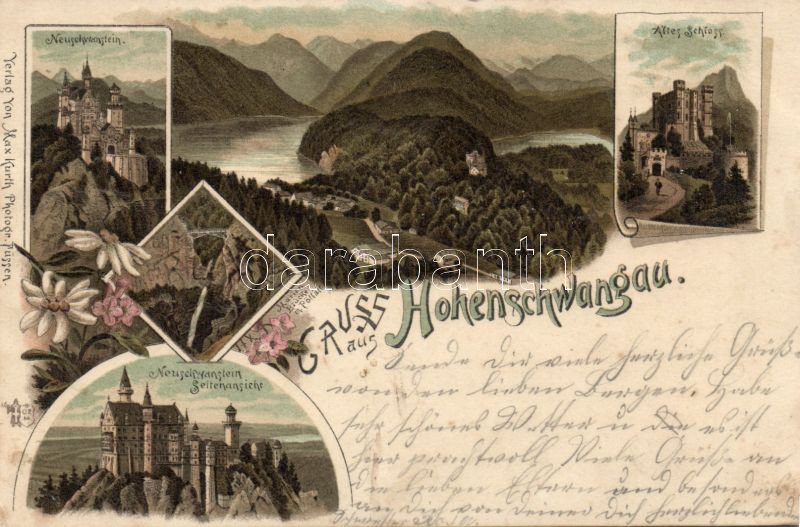 Neuschwanstein.
Altes Schloss
Verlag von Max Kurth Photogr. Füssen.
darabanth.com
Marien
Brücke
Gruss
aus
Hohenschwangau.
Neuschwanstein
Seitenansicht
Sende Dir viele herzliche Grüße
von den lieben Bergen. Habe
sehr schönes Wetter u die es ist
hier prachtvoll Viele Grüße an
die lieben Eltern und besonders
an Dich von Deiner Dich herzlichliebenden
Schwester